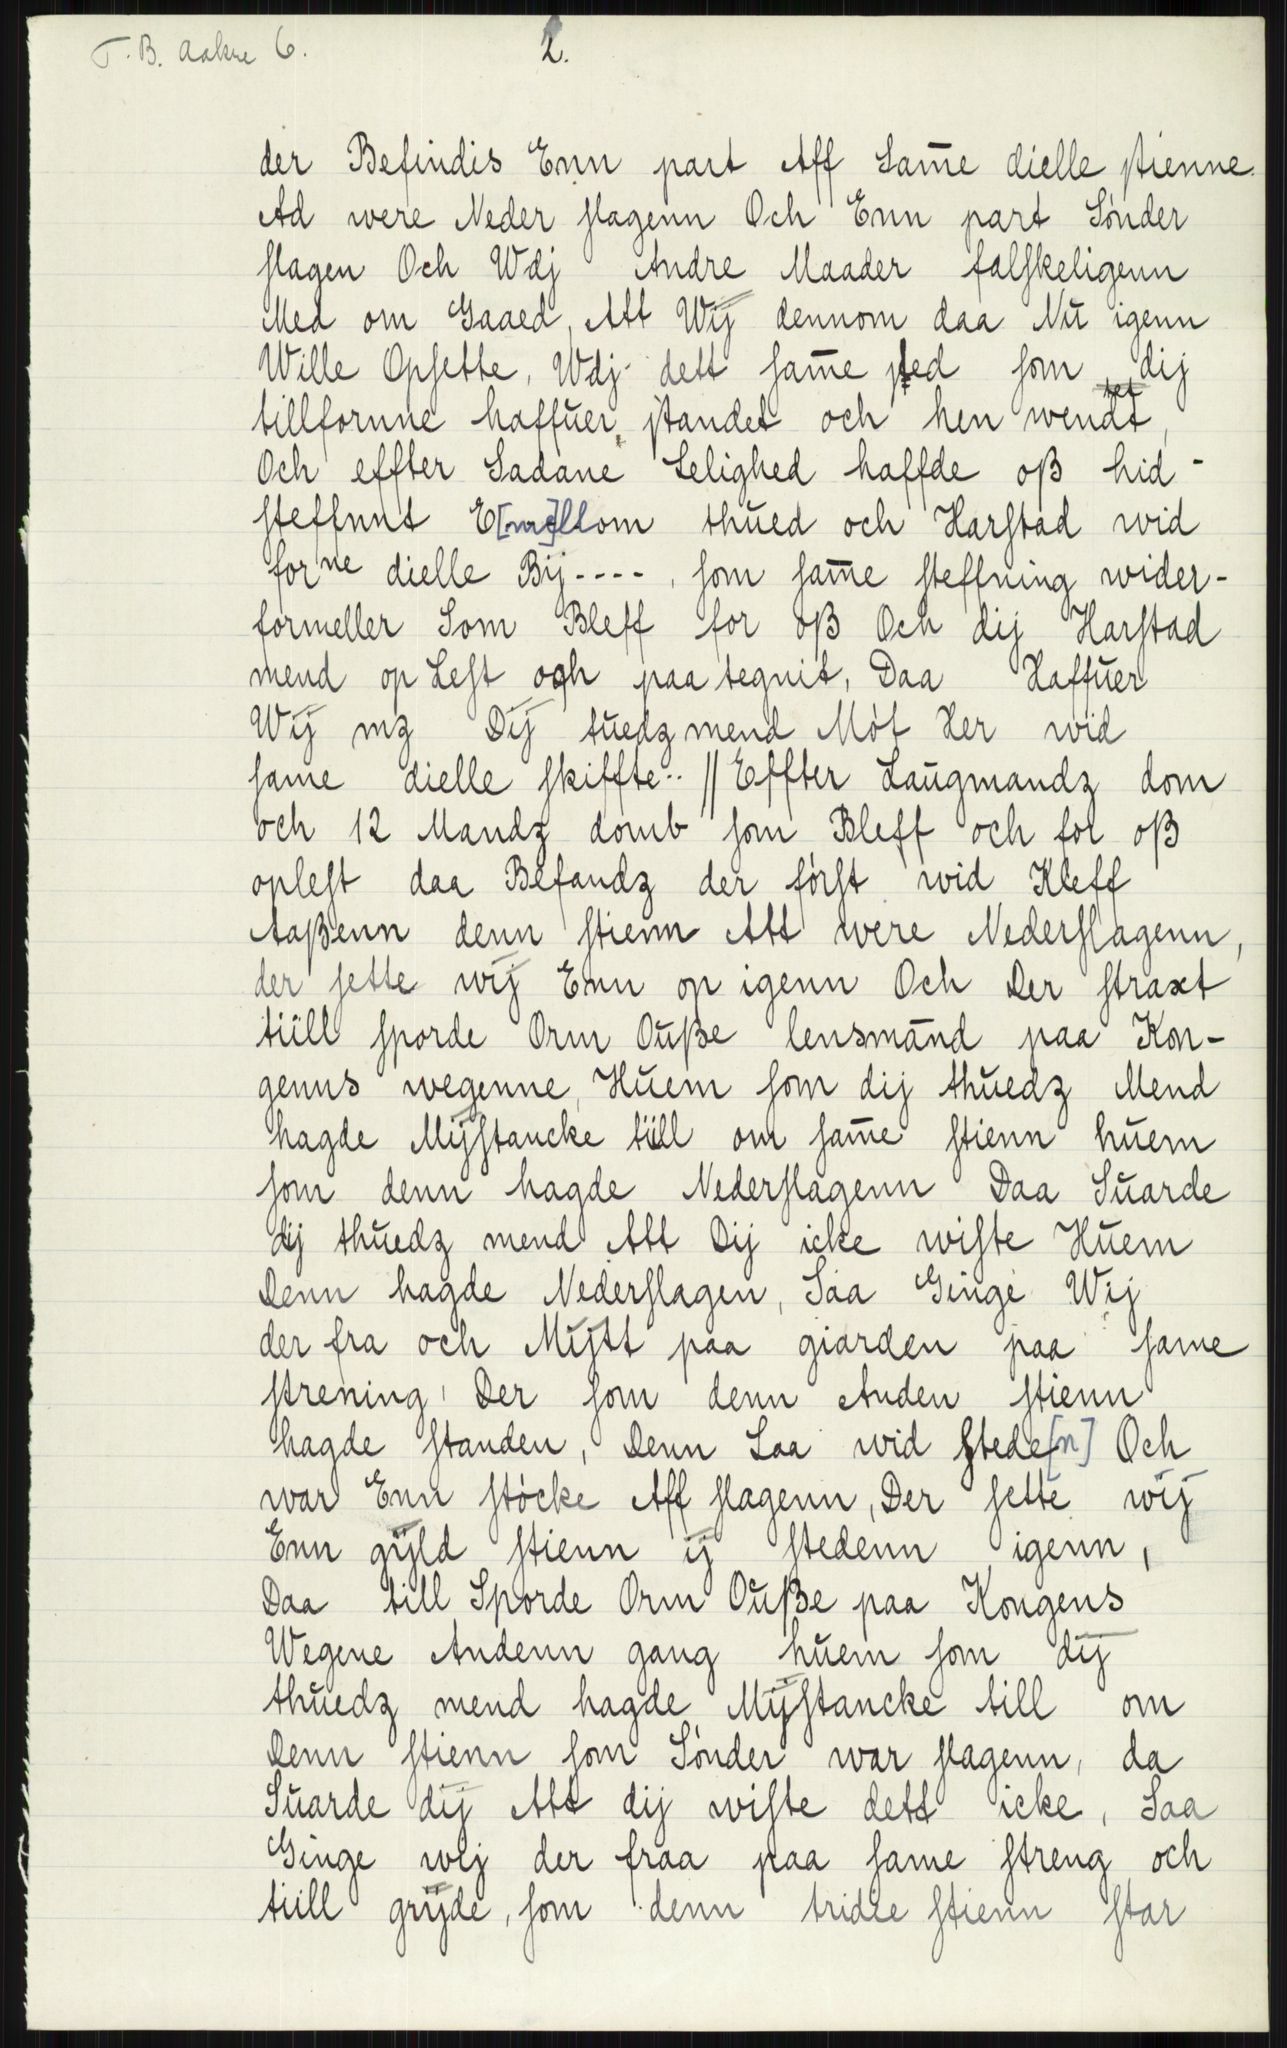 T. B. Aakre 6.
2.
der Befindis Enn part Aff Sam̅e dielle stienne.
Ad were Neder slagenn Och Enn part Sónder
slagen Och Wdj Andre Maader falskeligenn
Med om Gaaed, Att Wij dennom daa Nŭ igenn
Wille Opsette, Wdj dett sam̅e sted som dij
tillfornne haffŭer standet och hen wendt,
tet
Och effter Sadane Leilighed haffde oß hid-
steffnnt E[me]llom thŭed och Harstad wid
forne dielle Bij----, som sam̅e steffning wider-
formeller Som Bleff for oß Och dij Harstad
mend op Lest och paa tegnit, Daa Haffŭer
Wij mz Dij tŭedz mend Mót Her wid
same dielle skiffte.. // Effter Laŭgmandz dom
och 12 Mandz domb som Bleff och for oß
oplest daa Befandz der fórst wid Kleff
Aaßenn denn stienn Att were Nederslagenn,
der sette wij Enn op igenn Och Der straxt
tiill sporde Orm Oŭße lensmānd paa Kon-
genns wegenne, Hŭem som dij thŭedz Mend
hagde Mijstancke tiill om sam̅e stienn hŭem
som denn hagde Nederslagenn Daa Sŭarde
dij thŭedz mend Att Dij icke wiste Hŭem
Denn hagde Nederslagen, Saa Ginge Wij
der fra och Mijtt paa giarden paa same
strening, Der som denn Anden stienn
hagde standen, Denn Laa wid stede[n] Och
war Enn stócke Aff slagenn, Der sette wij
Enn gijld stienn ij stedenn igenn,
Daa till Sporde Orm Oŭße paa Kongens
Wegene Andenn gang hŭem som dij
thŭedz mend hagde Mijstancke till om
Denn stienn som Sónder war slagenn, da
Sŭarde dij Att dij wiste dett icke, Saa
Ginge wij der fraa paa same streng och
tiill grijde, som denn tridie stienn star